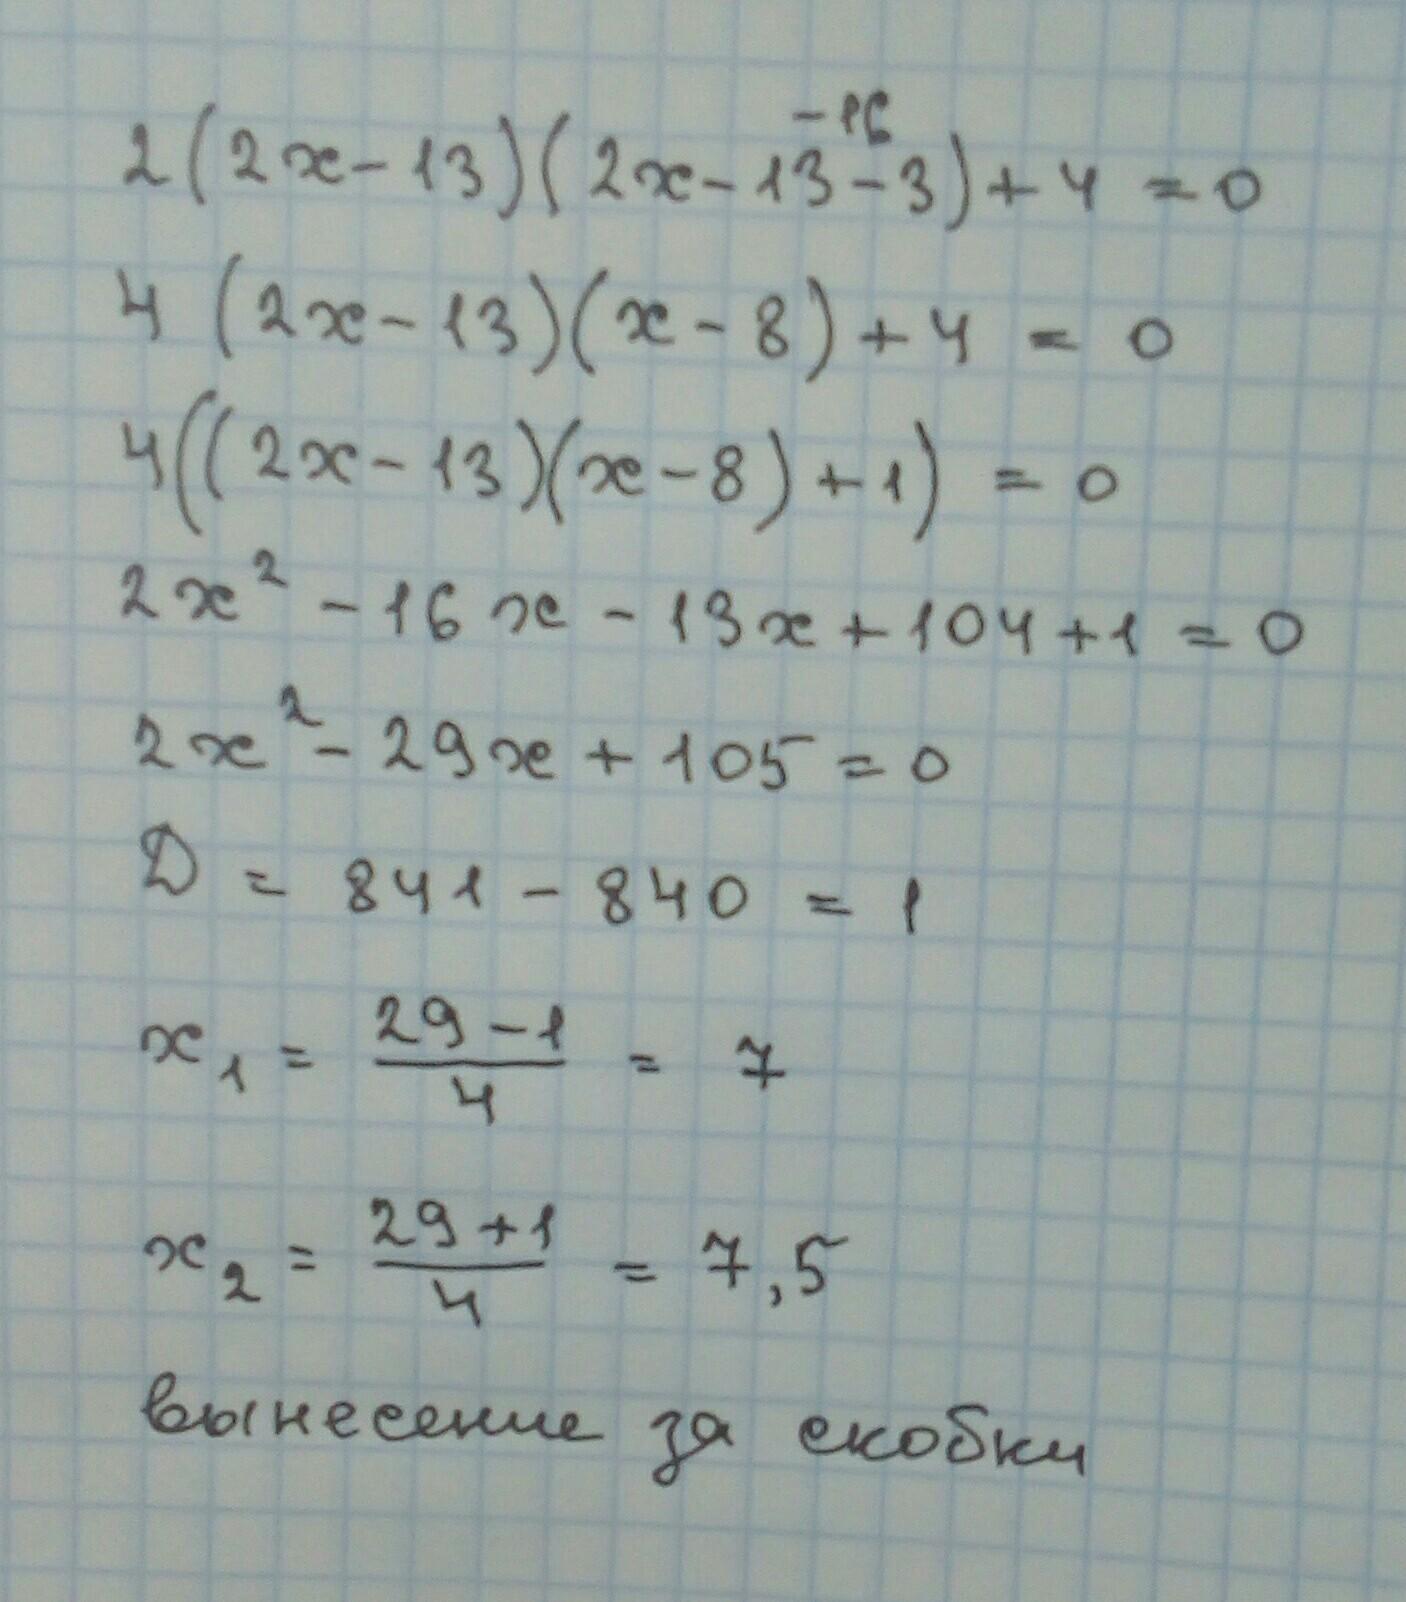 -16
2(2x-13)(2x-13-3)+4=0
4(2x-13)(x-8)+4=0
4((2x-13)(x-8)+1)=0
2x²-16x-13x+104+1=0
2x²-29x+105=0
D=841-840=1
x₁=\frac{29-1}{4}=7
x₂=\frac{29+1}{4}=7,5
вынесение за скобки